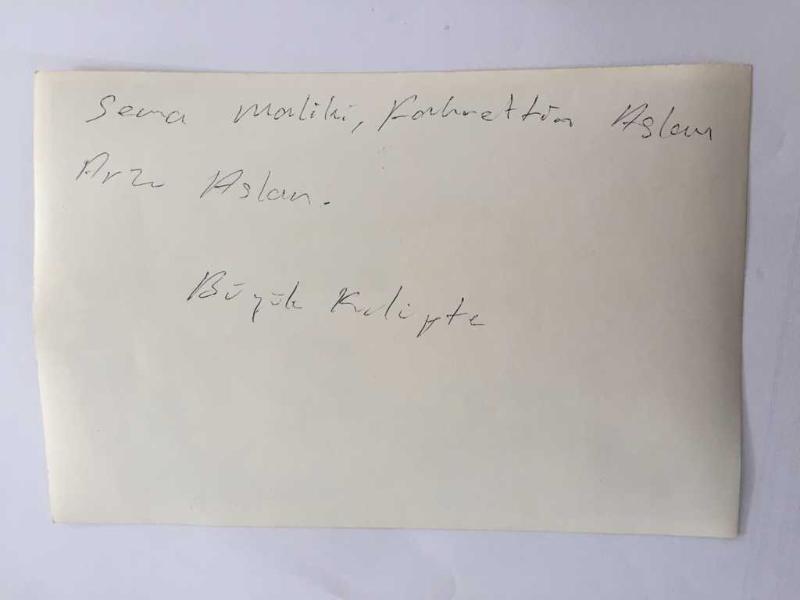 Sema Maliki, Fahrettin Aslan
Arzu Aslan.
Büyük Kulüpte